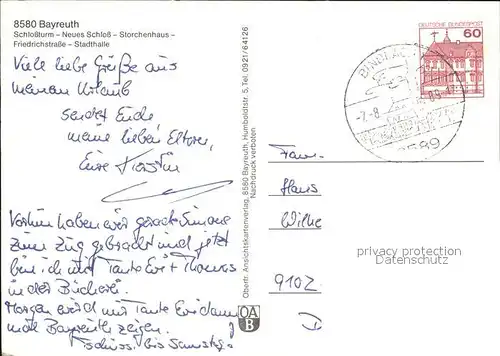 8580 Bayreuth
Schloßturm – Neues Schloß – Storchenhaus –
Friedrichstraße – Stadthalle
Viele liebe Grüße aus
meinem Urlaub
sendet Euch
meine lieben Eltern,
Eure Kerstin
Vorhin haben wir gerade Simone
zum Zug gebracht und jetzt
bin ich mit Tante Evi + Thomas
in der Bücherei.
Morgen wird mir Tante Evi dann
mal Bayreuth zeigen.
Tschüss! bis Samstag
Oberfr. Ansichtskartenverlag, 8580 Bayreuth, Humboldtstr. 5, Tel. 0921/64126
Nachdruck verboten
OA
B
DEUTSCHE BUNDESPOST
60
BINDLACH
-7.-8.
8589
Fam.
Hans
Wilke
9102
privacy protection
www.ansichtskarten-center.de